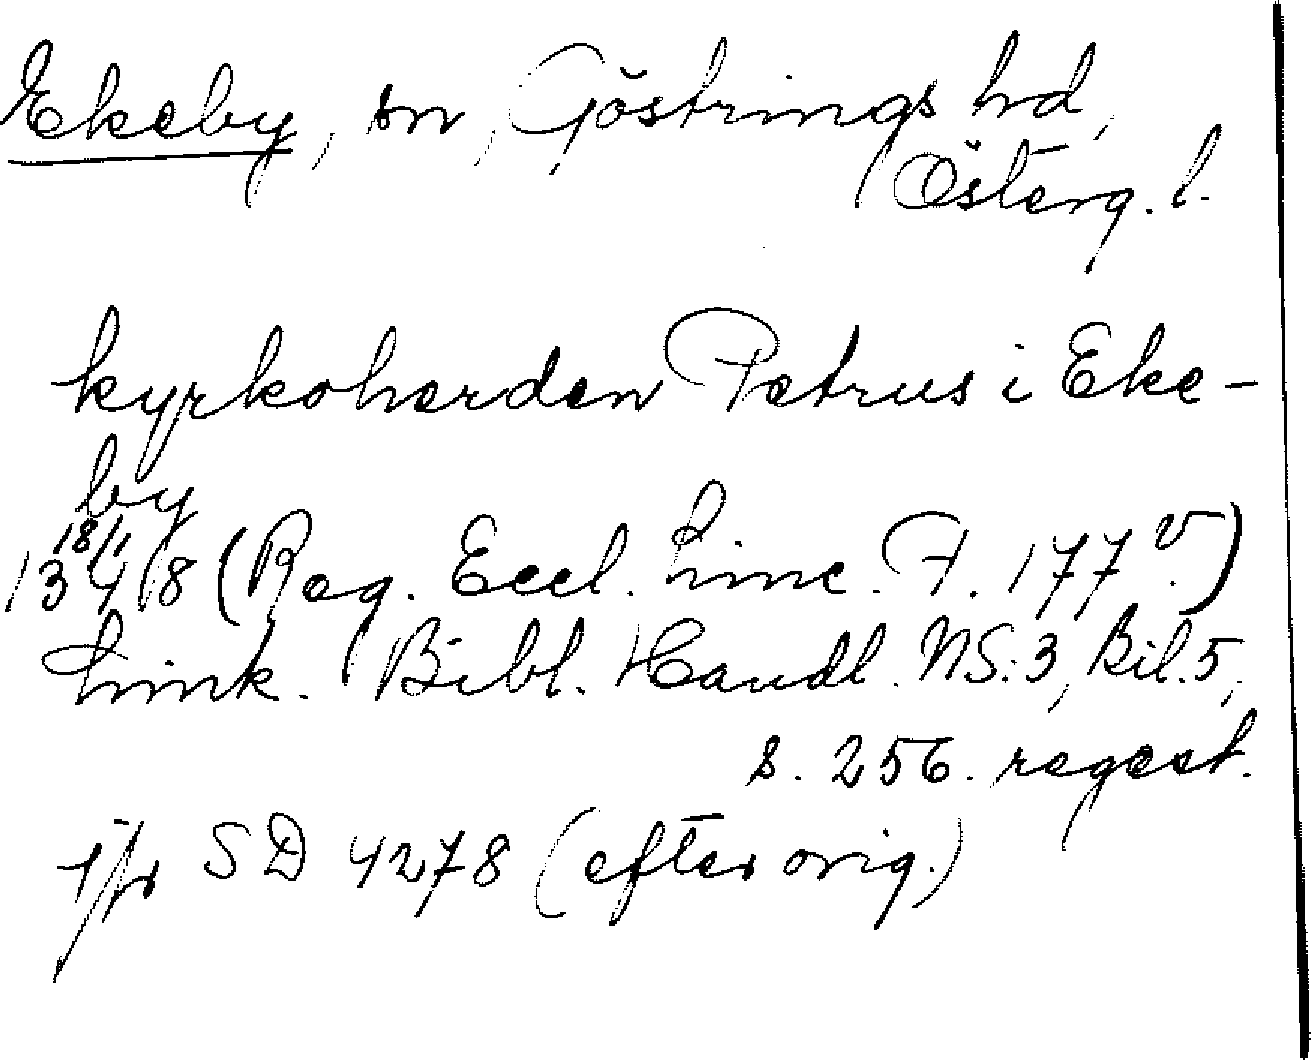 Ekeby, sn, Göstrings hd,
Österg. l.
kyrkoherden Petrus i Eke-
by
18/1
1348 (Reg. Eccl. Linc. F. 177 v.)
Link. Bibl. Handl. NS. 3, Bil. 5,
s. 256. regest.
jfr SD 4278 (efter orig.)